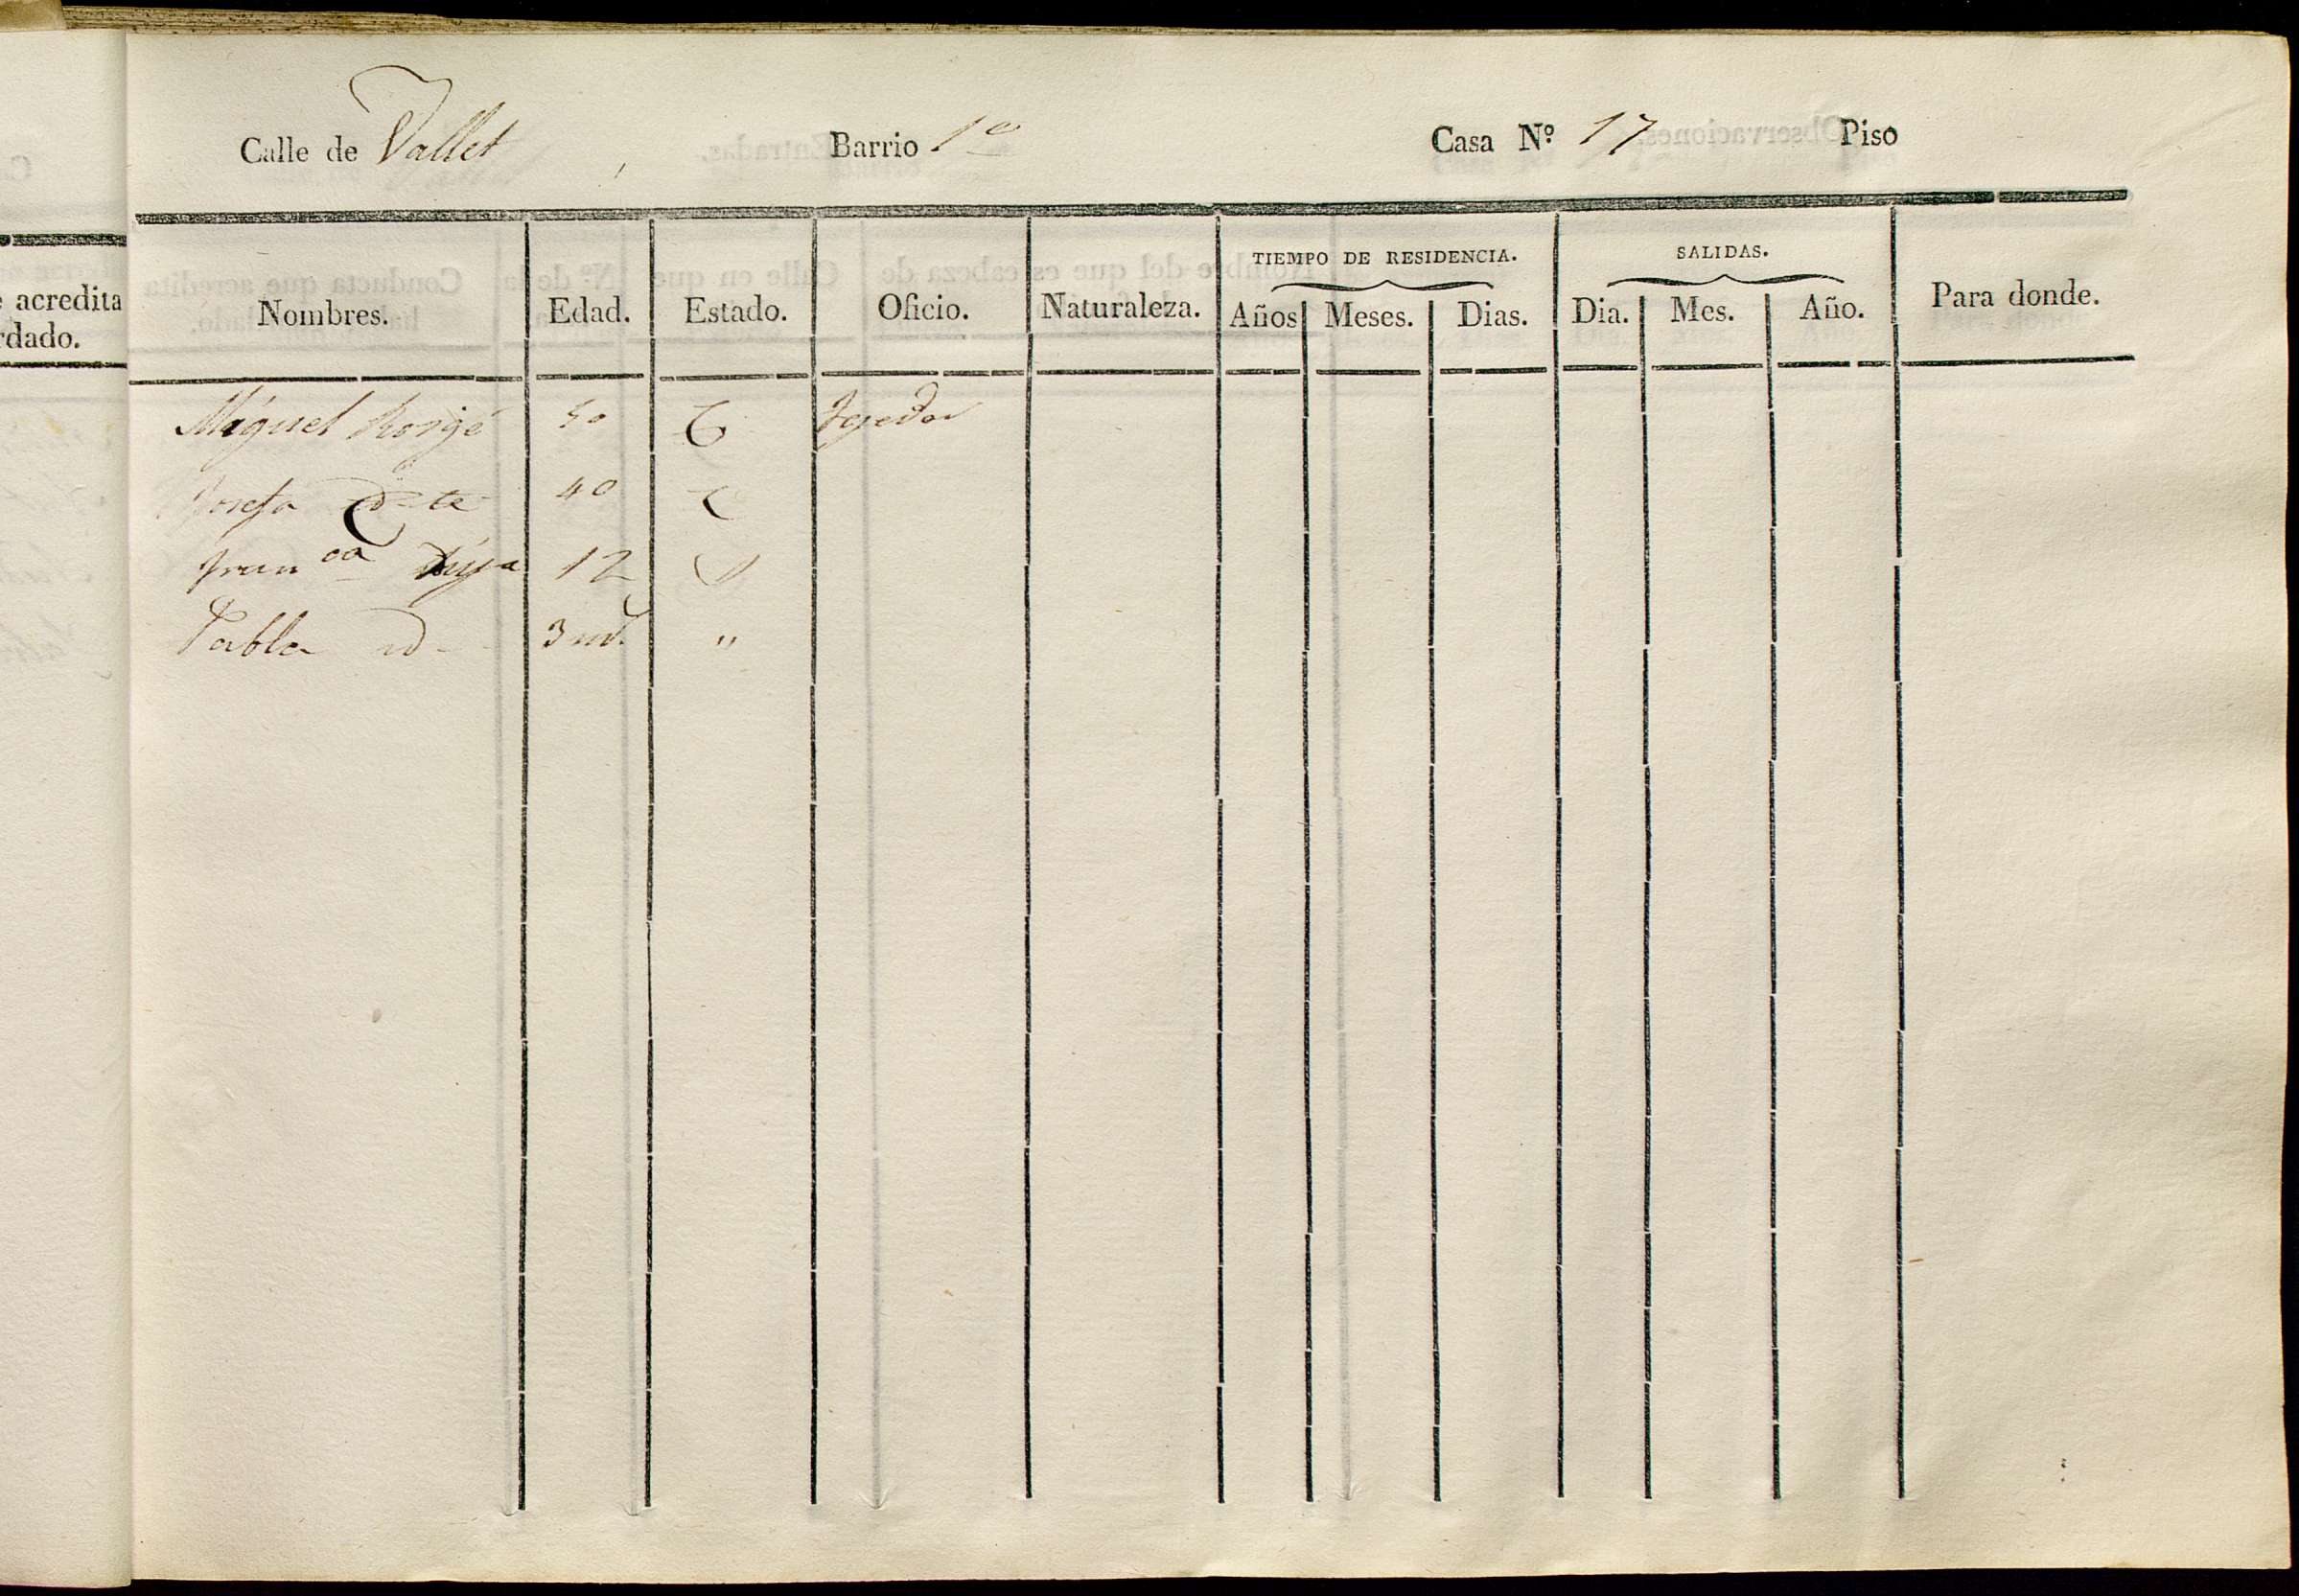 Calle de Vallet Barrio 1º Casa Nº 17 Piso
e acredita
rdado.
TIEMPO DE RESIDENCIA. SALIDAS.
Nombres. Edad. Estado. Oficio. Naturaleza. Años Meses. Dias. Dia. Mes. Año. Para donde.
Miguel 50 C Tejedor
Josefa 40 C
Franca hija 12
Pabla id 3 m. "